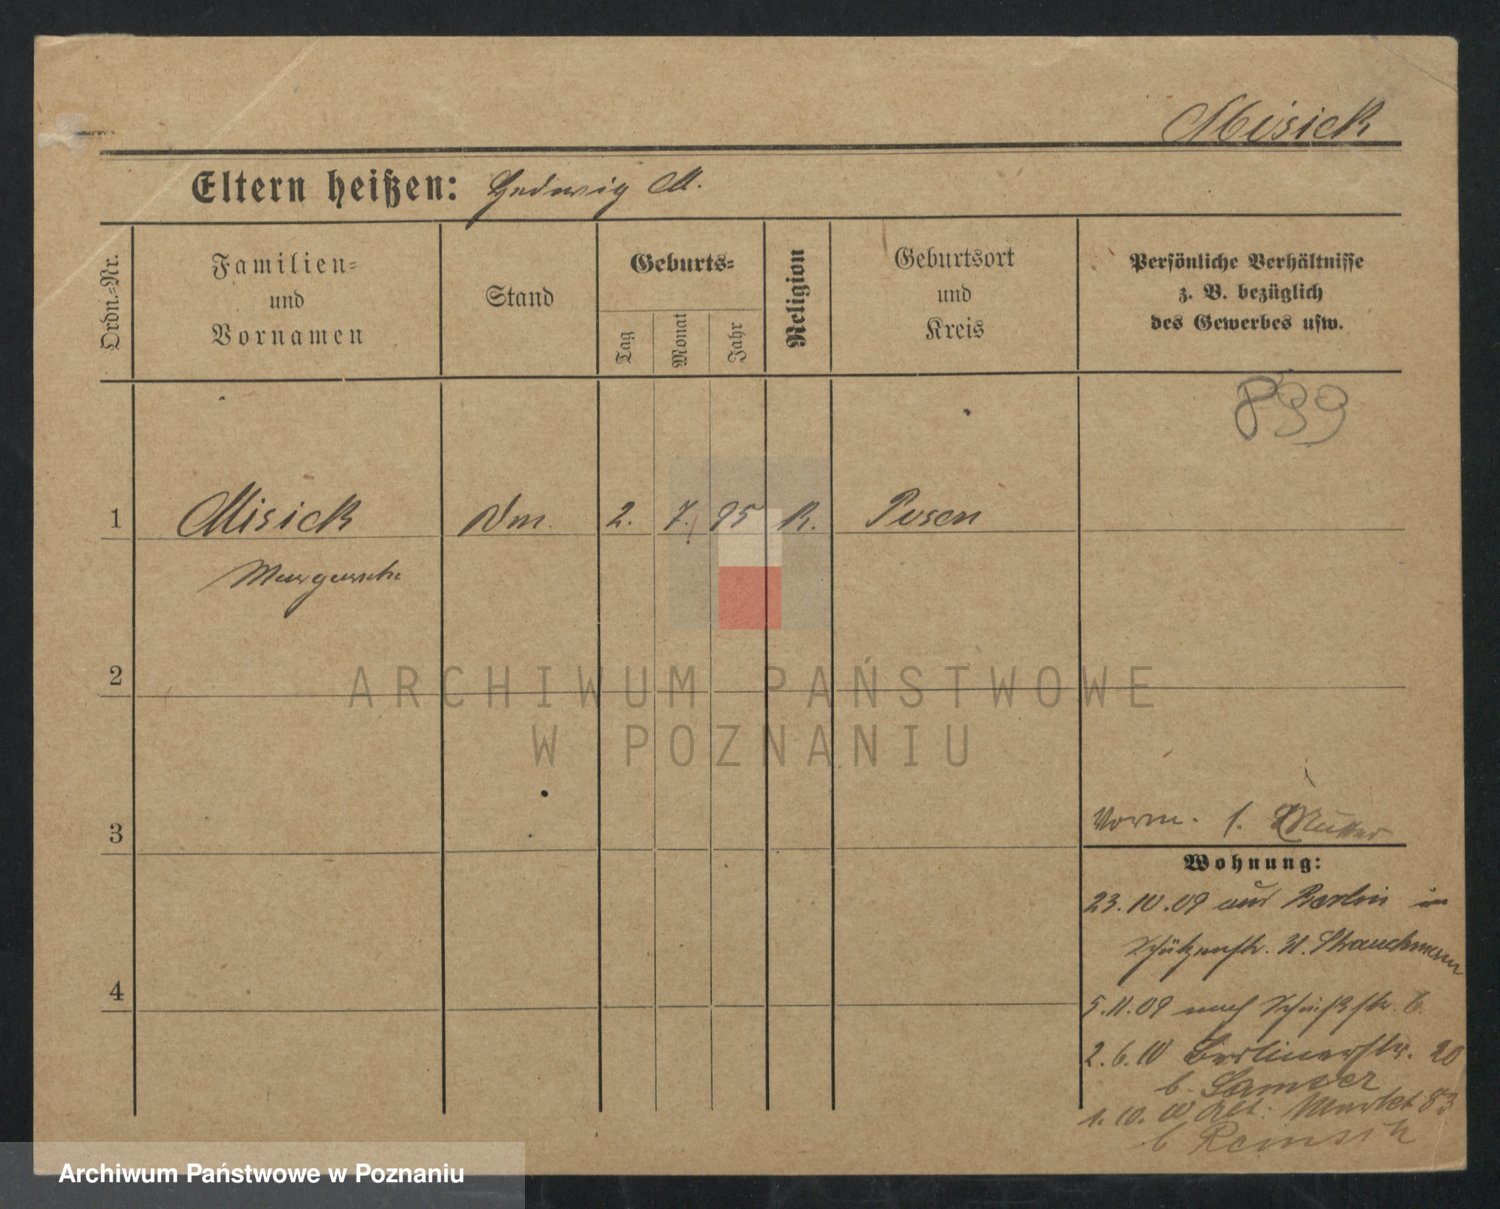 Misick
Eltern heißen: Hedwig M.
Ordn.-Nr.
Familien-
und
Vornamen
Stand
Geburts-
Tag
Monat
Jahr
Religion
Geburtsort
und
Kreis
Persönliche Verhältnisse
z. B. bezüglich
des Gewerbes usw.
899
1 Misick 2. 7. 95 K. Posen
Margarethe
2
ARCHIWUM PAŃSTWOWE
W POZNANIU
3
Vorm. s. Mutter
Wohnung:
23.10.09 aus Berlin in
Schützenstr. 31. Strauchmann
4
5.11.09 nach Schießstr. 6
2.6.10 Berlinerstr. 20
b.
1.10.10 Alt. Markt 83
b
Archiwum Państwowe w Poznaniu